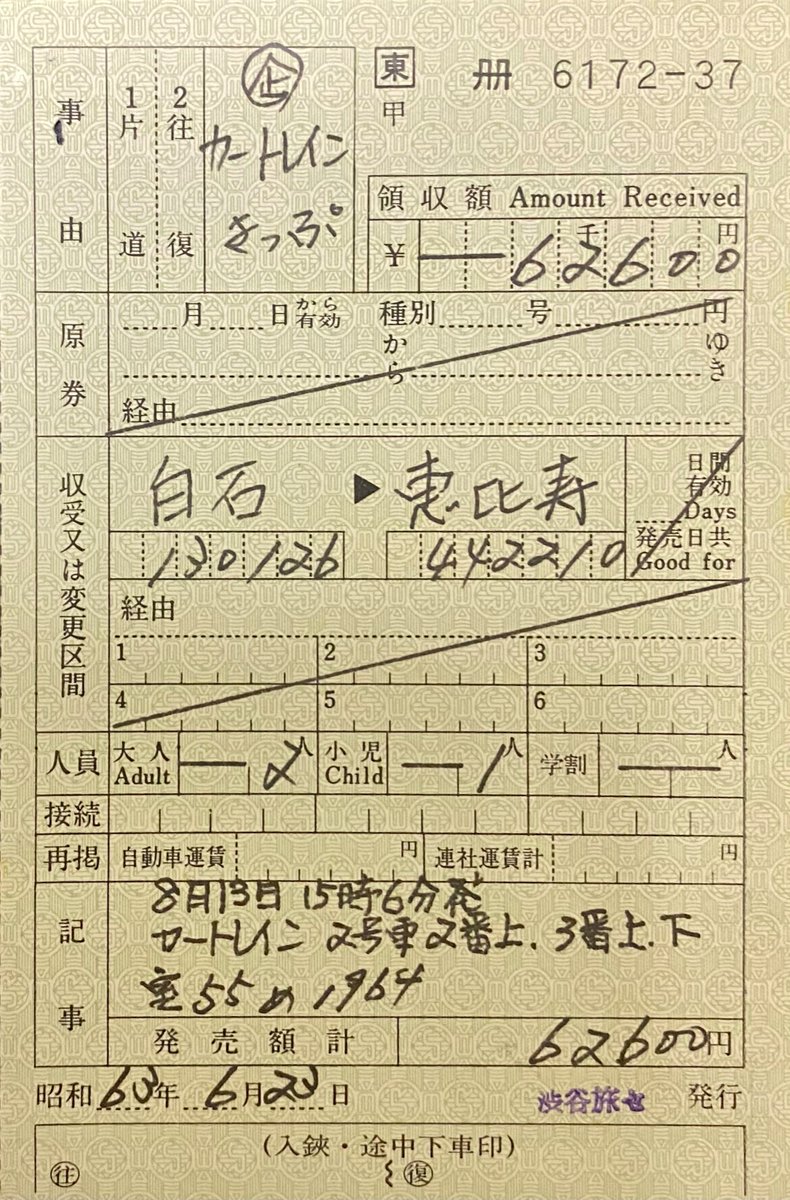 東 冊 6172-37
甲
事由
1片道
2往復
企
カートレイン
きっぷ
領収額 Amount Received
千 円
¥ ー62600
原券
月 日から有効 種別 号 円
から ゆき
経由
収受又は変更区間
白石 ▶ 恵比寿
130126 442210
日間
有効
Days
発売日共
Good for
経由
1 2 3
4 5 6
人員 大人 Adult ー2人 小児 Child ー1人 学割 ー人
接続
再掲 自動車運賃 円 連社運賃計 円
記事
8月13日 15時6分発
カートレイン 2号車2番上.3番上.下
55 め 1964
発売額計 62600円
昭和63年 6月23日 渋谷旅セ 発行
(入鋏・途中下車印)
往 復